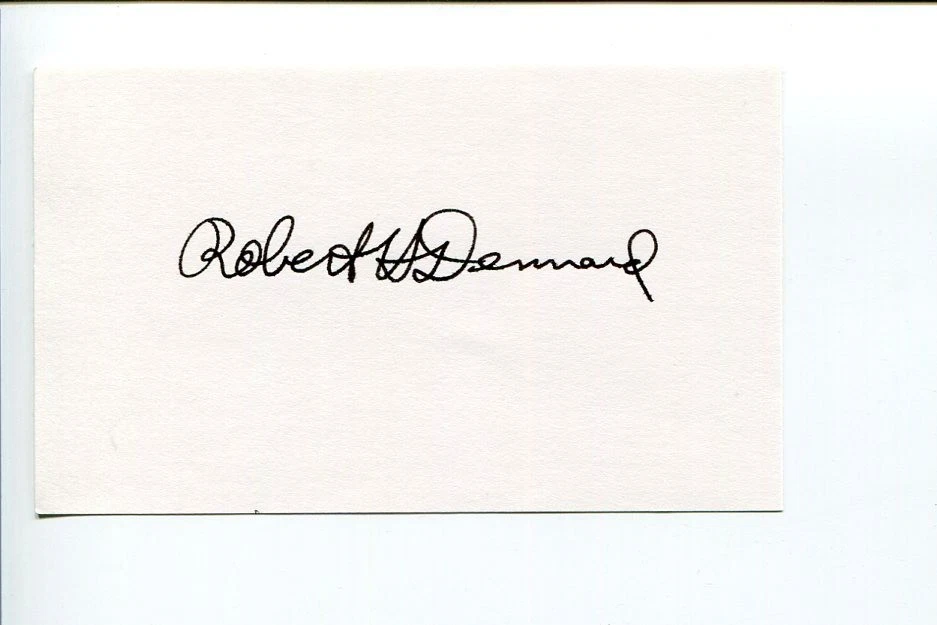 Robert H Dennard